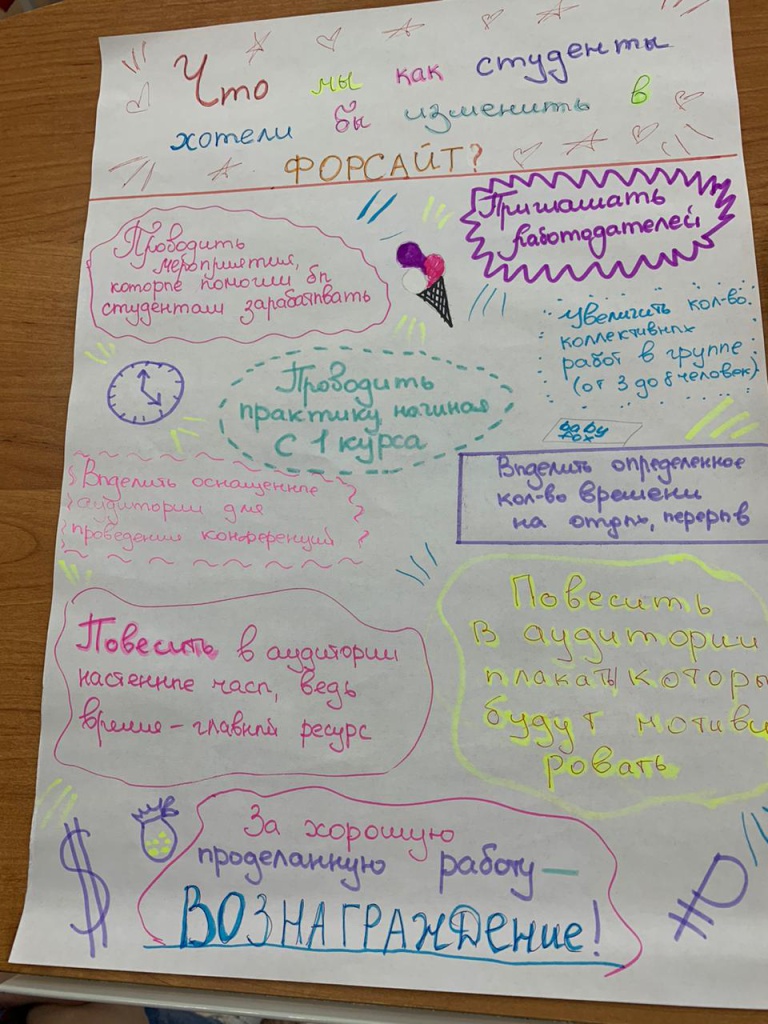 Что мы как студенты
хотели бы изменить в
ФОРСАЙТ?
Проводить
мероприятия,
которые помогли бы
студентам зарабатывать
Приглашать
работодателей
Увеличить кол-во
коллективных
работ в группе
(от 3 до 8 человек)
Проводить
практику начиная
с 1 курса
Выделить оснащенные
аудитории для
проведения конференций
Выделить определенное
кол-во времени
на отдых, перерыв
Повесить в аудитории
настенные часы, ведь
время – главный ресурс
Повесить
в аудитории
плакаты, которы
будут мотиви
ровать
За хорошую
проделанную работу –
ВОЗНАГРАЖДЕНИЕ!
$
₽